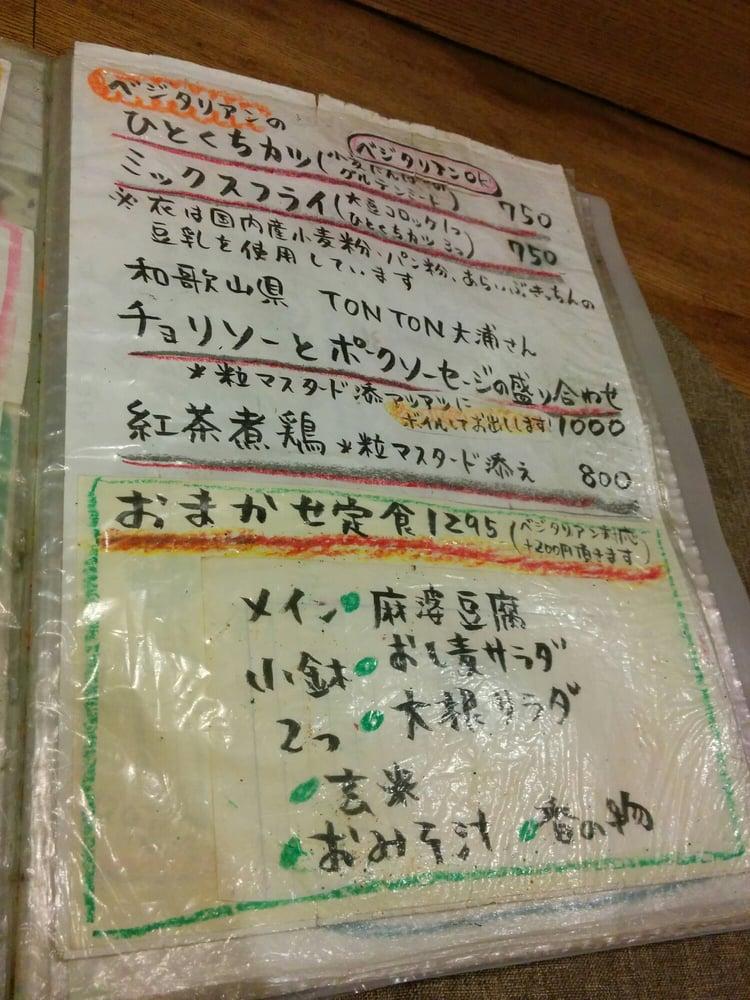 ベジタリアンの
ひとくちカツ(小麦たんぱくのグルテンミート) ベジタリアンOK 750
ミックスフライ(大豆コロッケ1つ ひとくちカツ3つ) 750
※衣は国内産小麦粉、パン粉、あらいぶきっちんの
豆乳を使用しています
和歌山県 TONTON大浦さん
チョリソーとポークソーセージの盛り合わせ
*粒マスタード添 アツアツに ボイルしてお出しします! 1000
紅茶煮鶏 *粒マスタード添え 800
おまかせ定食1295(ベジタリアン対応 +200円頂きます)
メイン・麻婆豆腐
小鉢・サラダ
2つ・大根サラダ
・玄米
・おみそ汁・香の物